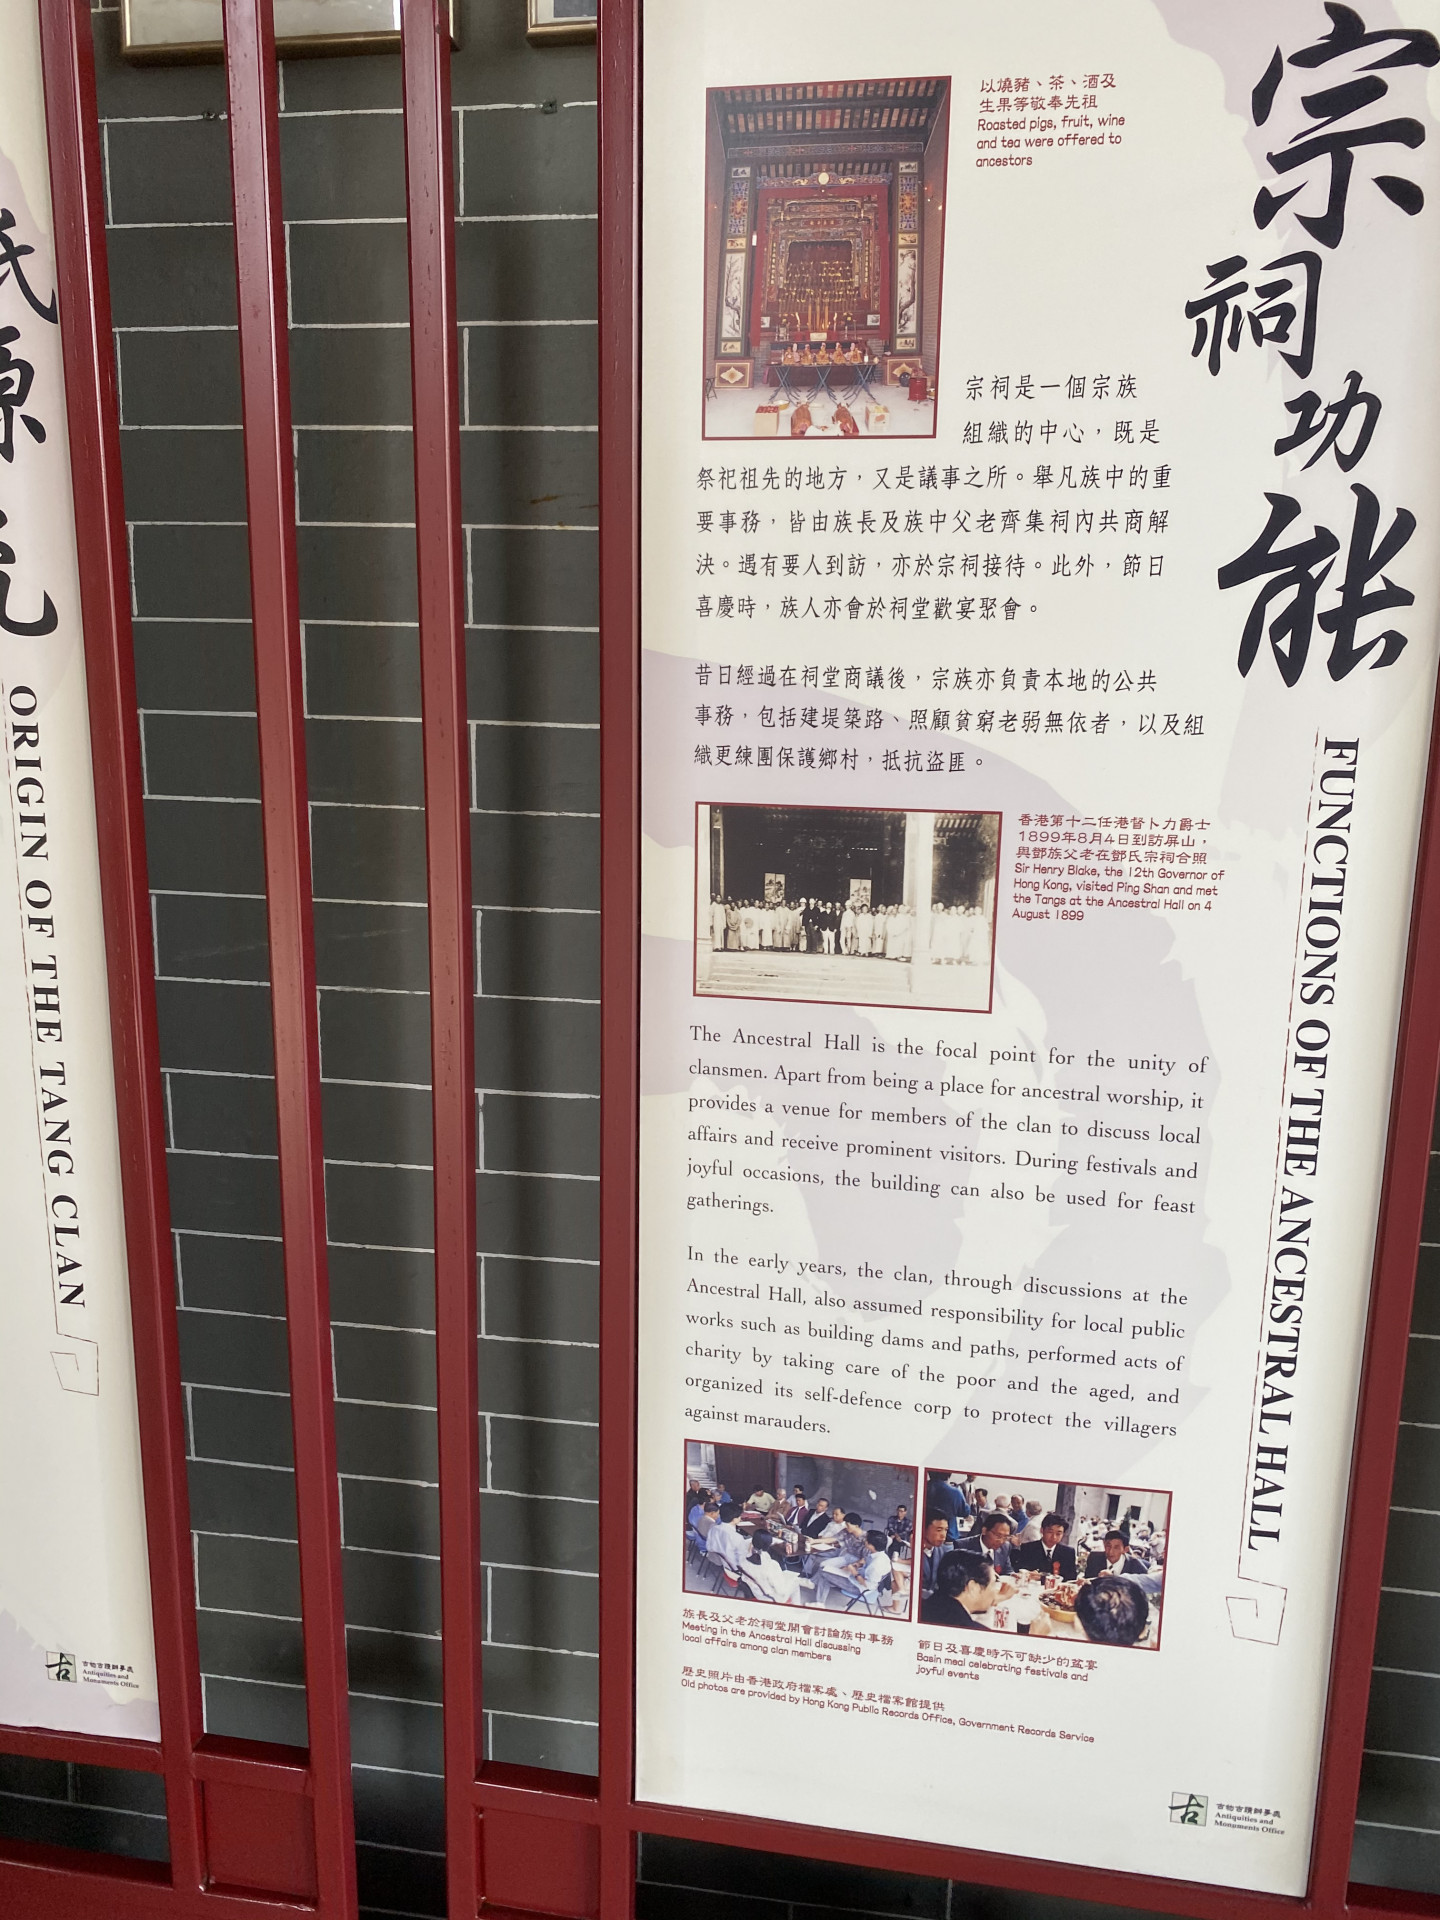 源
ORIGIN OF THE TANG CLAN
古物古蹟辦事處
Antiquities and
Monuments Office
宗祠功能
FUNCTIONS OF THE ANCESTRAL HALL
以燒豬、茶、酒及
生果等敬奉先祖
Roasted pigs, fruit, wine
and tea were offered to
ancestors
宗祠是一個宗族
組織的中心，既是
祭祀祖先的地方，又是議事之所。舉凡族中的重
要事務，皆由族長及族中父老齊集祠內共商解
決。遇有要人到訪，亦於宗祠接待。此外，節日
喜慶時，族人亦會於祠堂歡宴聚會。
昔日經過在祠堂商議後，宗族亦負責本地的公共
事務，包括建堤築路、照顧貧窮老弱無依者，以及組
織更練團保護鄉村，抵抗盜匪。
香港第十二任港督卜力爵士
1899年8月4日到訪屏山，
與鄧族父老在鄧氏宗祠合照
Sir Henry Blake, the 12th Governor of
Hong Kong, visited Ping Shan and met
the Tangs at the Ancestral Hall on 4
August 1899
The Ancestral Hall is the focal point for the unity of
clansmen. Apart from being a place for ancestral worship, it
provides a venue for members of the clan to discuss local
affairs and receive prominent visitors. During festivals and
joyful occasions, the building can also be used for feast
gatherings.
In the early years, the clan, through discussions at the
Ancestral Hall, also assumed responsibility for local public
works such as building dams and paths, performed acts of
charity by taking care of the poor and the aged, and
organized its self-defence corp to protect the villagers
against marauders.
族長及父老於祠堂開會討論族中事務
Meeting in the Ancestral Hall discussing
local affairs among clan members
節日及喜慶時不可缺少的盆宴
Basin meal celebrating festivals and
joyful events
歷史照片由香港政府檔案處、歷史檔案館提供
Old photos are provided by Hong Kong Public Records Office, Government Records Service
古物古蹟辦事處
Antiquities and
Monuments Office